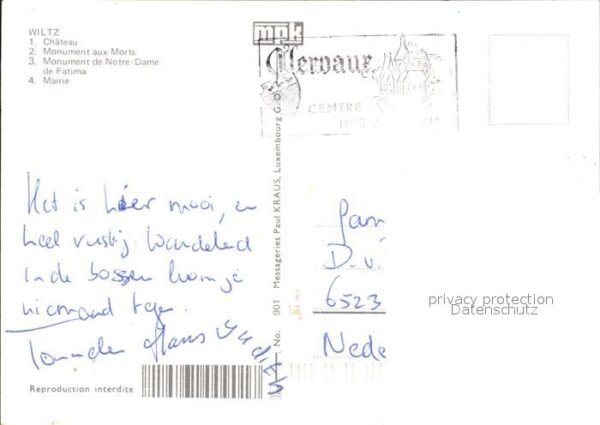 WILTZ
1. Château
2. Monument aux Morts
3. Monument de Notre-Dame
de Fatima
4. Mairie
mpk
Clervaux
CENTRE
No. 901 Messageries Paul KRAUS, Luxembourg G. D.
Het is hier mooi, en
heel rustig. Wandelend
in de bossen kom je
niemand tegen.
Hans
Fam
D. v.
6523
Nede
privacy protection
Datenschutz
Reproduction interdite